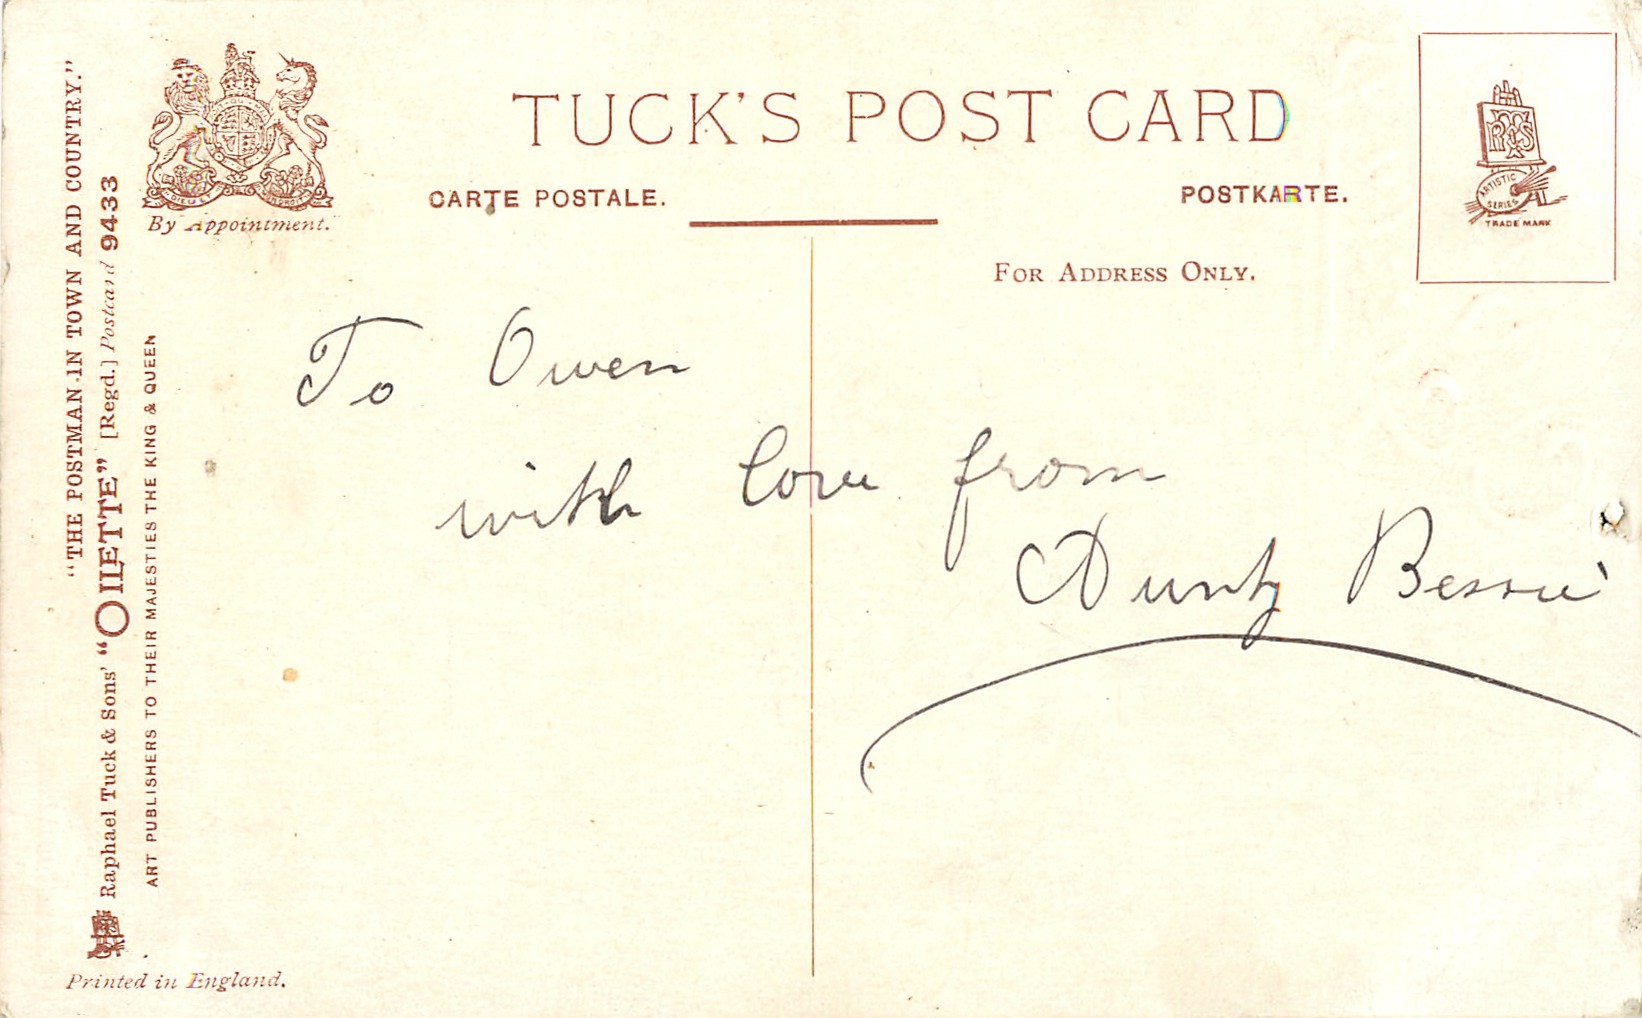 "THE POSTMAN IN TOWN AND COUNTRY."
Raphael Tuck & Sons' "OILETTE" [Regd.] Postcard 9433
ART PUBLISHERS TO THEIR MAJESTIES THE KING & QUEEN
By Appointment.
TUCK'S POST CARD
CARTE POSTALE.
POSTKARTE.
FOR ADDRESS ONLY.
ARTISTIC
SERIES
TRADE MARK
To Owen
with love from
Aunty Bessie
Printed in England.